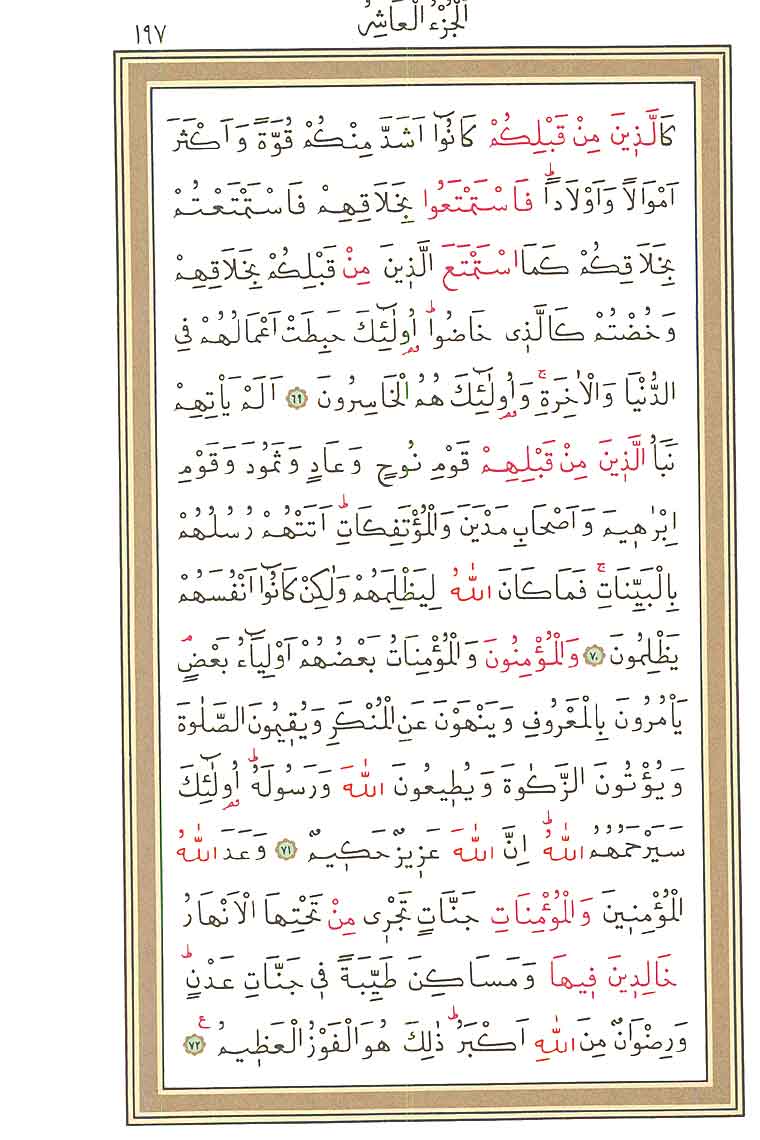 اَلْجُزْءُ الْعَاشِرُ
١٩٧
كَالَّذ۪ينَ مِنْ قَبْلِكُمْ كَانُٓوا اَشَدَّ مِنْكُمْ قُوَّةً وَاَكْثَرَ
اَمْوَالاً وَاَوْلَاداًۜ فَاسْتَمْتَعُوا بِخَلَاقِهِمْ فَاسْتَمْتَعْتُمْ
بِخَلَاقِكُمْ كَمَا اسْتَمْتَعَ الَّذ۪ينَ مِنْ قَبْلِكُمْ بِخَلَاقِهِمْ
وَخُضْتُمْ كَالَّذ۪ي خَاضُواۜ اُو۬لٰٓئِكَ حَبِطَتْ اَعْمَالُهُمْ فِي
الدُّنْيَا وَالْاٰخِرَةِۚ وَاُو۬لٰٓئِكَ هُمُ الْخَاسِرُونَ ٦٩ اَلَمْ يَأْتِهِمْ
نَبَأُ الَّذ۪ينَ مِنْ قَبْلِهِمْ قَوْمِ نُوحٍ وَعَادٍ وَثَمُودَ وَقَوْمِ
اِبْرٰه۪يمَ وَاَصْحَابِ مَدْيَنَ وَالْمُؤْتَفِكَاتِۜ اَتَتْهُمْ رُسُلُهُمْ
بِالْبَيِّنَاتِۚ فَمَا كَانَ اللّٰهُ لِيَظْلِمَهُمْ وَلٰكِنْ كَانُٓوا اَنْفُسَهُمْ
يَظْلِمُونَ ٧٠ وَالْمُؤْمِنُونَ وَالْمُؤْمِنَاتُ بَعْضُهُمْ اَوْلِيَٓاءُ بَعْضٍۢ
يَأْمُرُونَ بِالْمَعْرُوفِ وَيَنْهَوْنَ عَنِ الْمُنْكَرِ وَيُق۪يمُونَ الصَّلٰوةَ
وَيُؤْتُونَ الزَّكٰوةَ وَيُط۪يعُونَ اللّٰهَ وَرَسُولَهُۜ اُو۬لٰٓئِكَ
سَيَرْحَمُهُمُ اللّٰهُۜ اِنَّ اللّٰهَ عَز۪يزٌ حَك۪يمٌ ٧١ وَعَدَ اللّٰهُ
الْمُؤْمِن۪ينَ وَالْمُؤْمِنَاتِ جَنَّاتٍ تَجْر۪ي مِنْ تَحْتِهَا الْاَنْهَارُ
خَالِد۪ينَ ف۪يهَا وَمَسَاكِنَ طَيِّبَةً ف۪ي جَنَّاتِ عَدْنٍۜ
وَرِضْوَانٌ مِنَ اللّٰهِ اَكْبَرُۜ ذٰلِكَ هُوَ الْفَوْزُ الْعَظ۪يمُ ع ٧٢